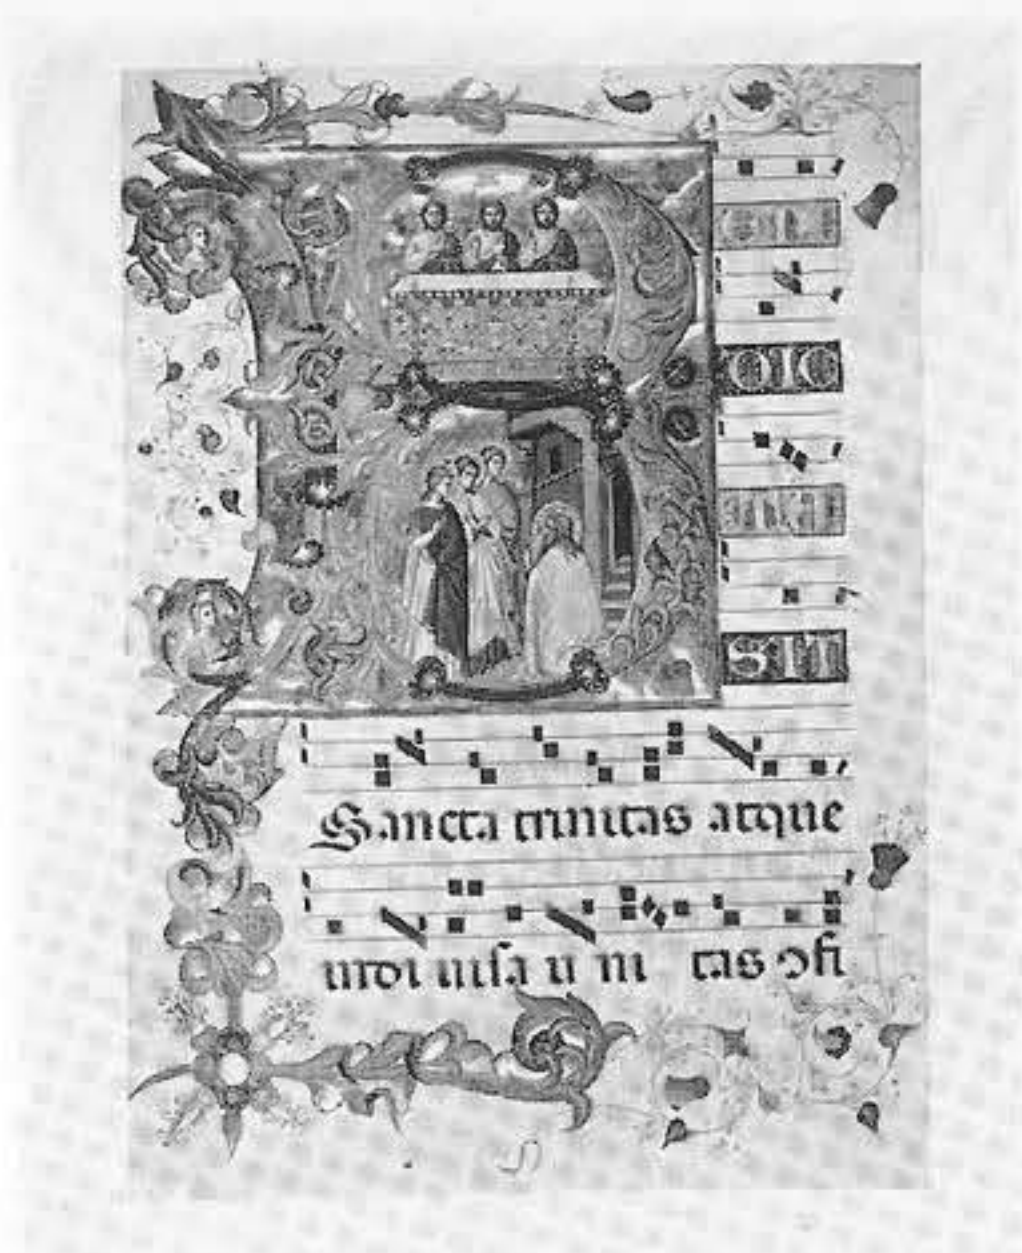 B
DIC
SIT
Sancta trinitas atque
indi uisa u ni tas ɔfi